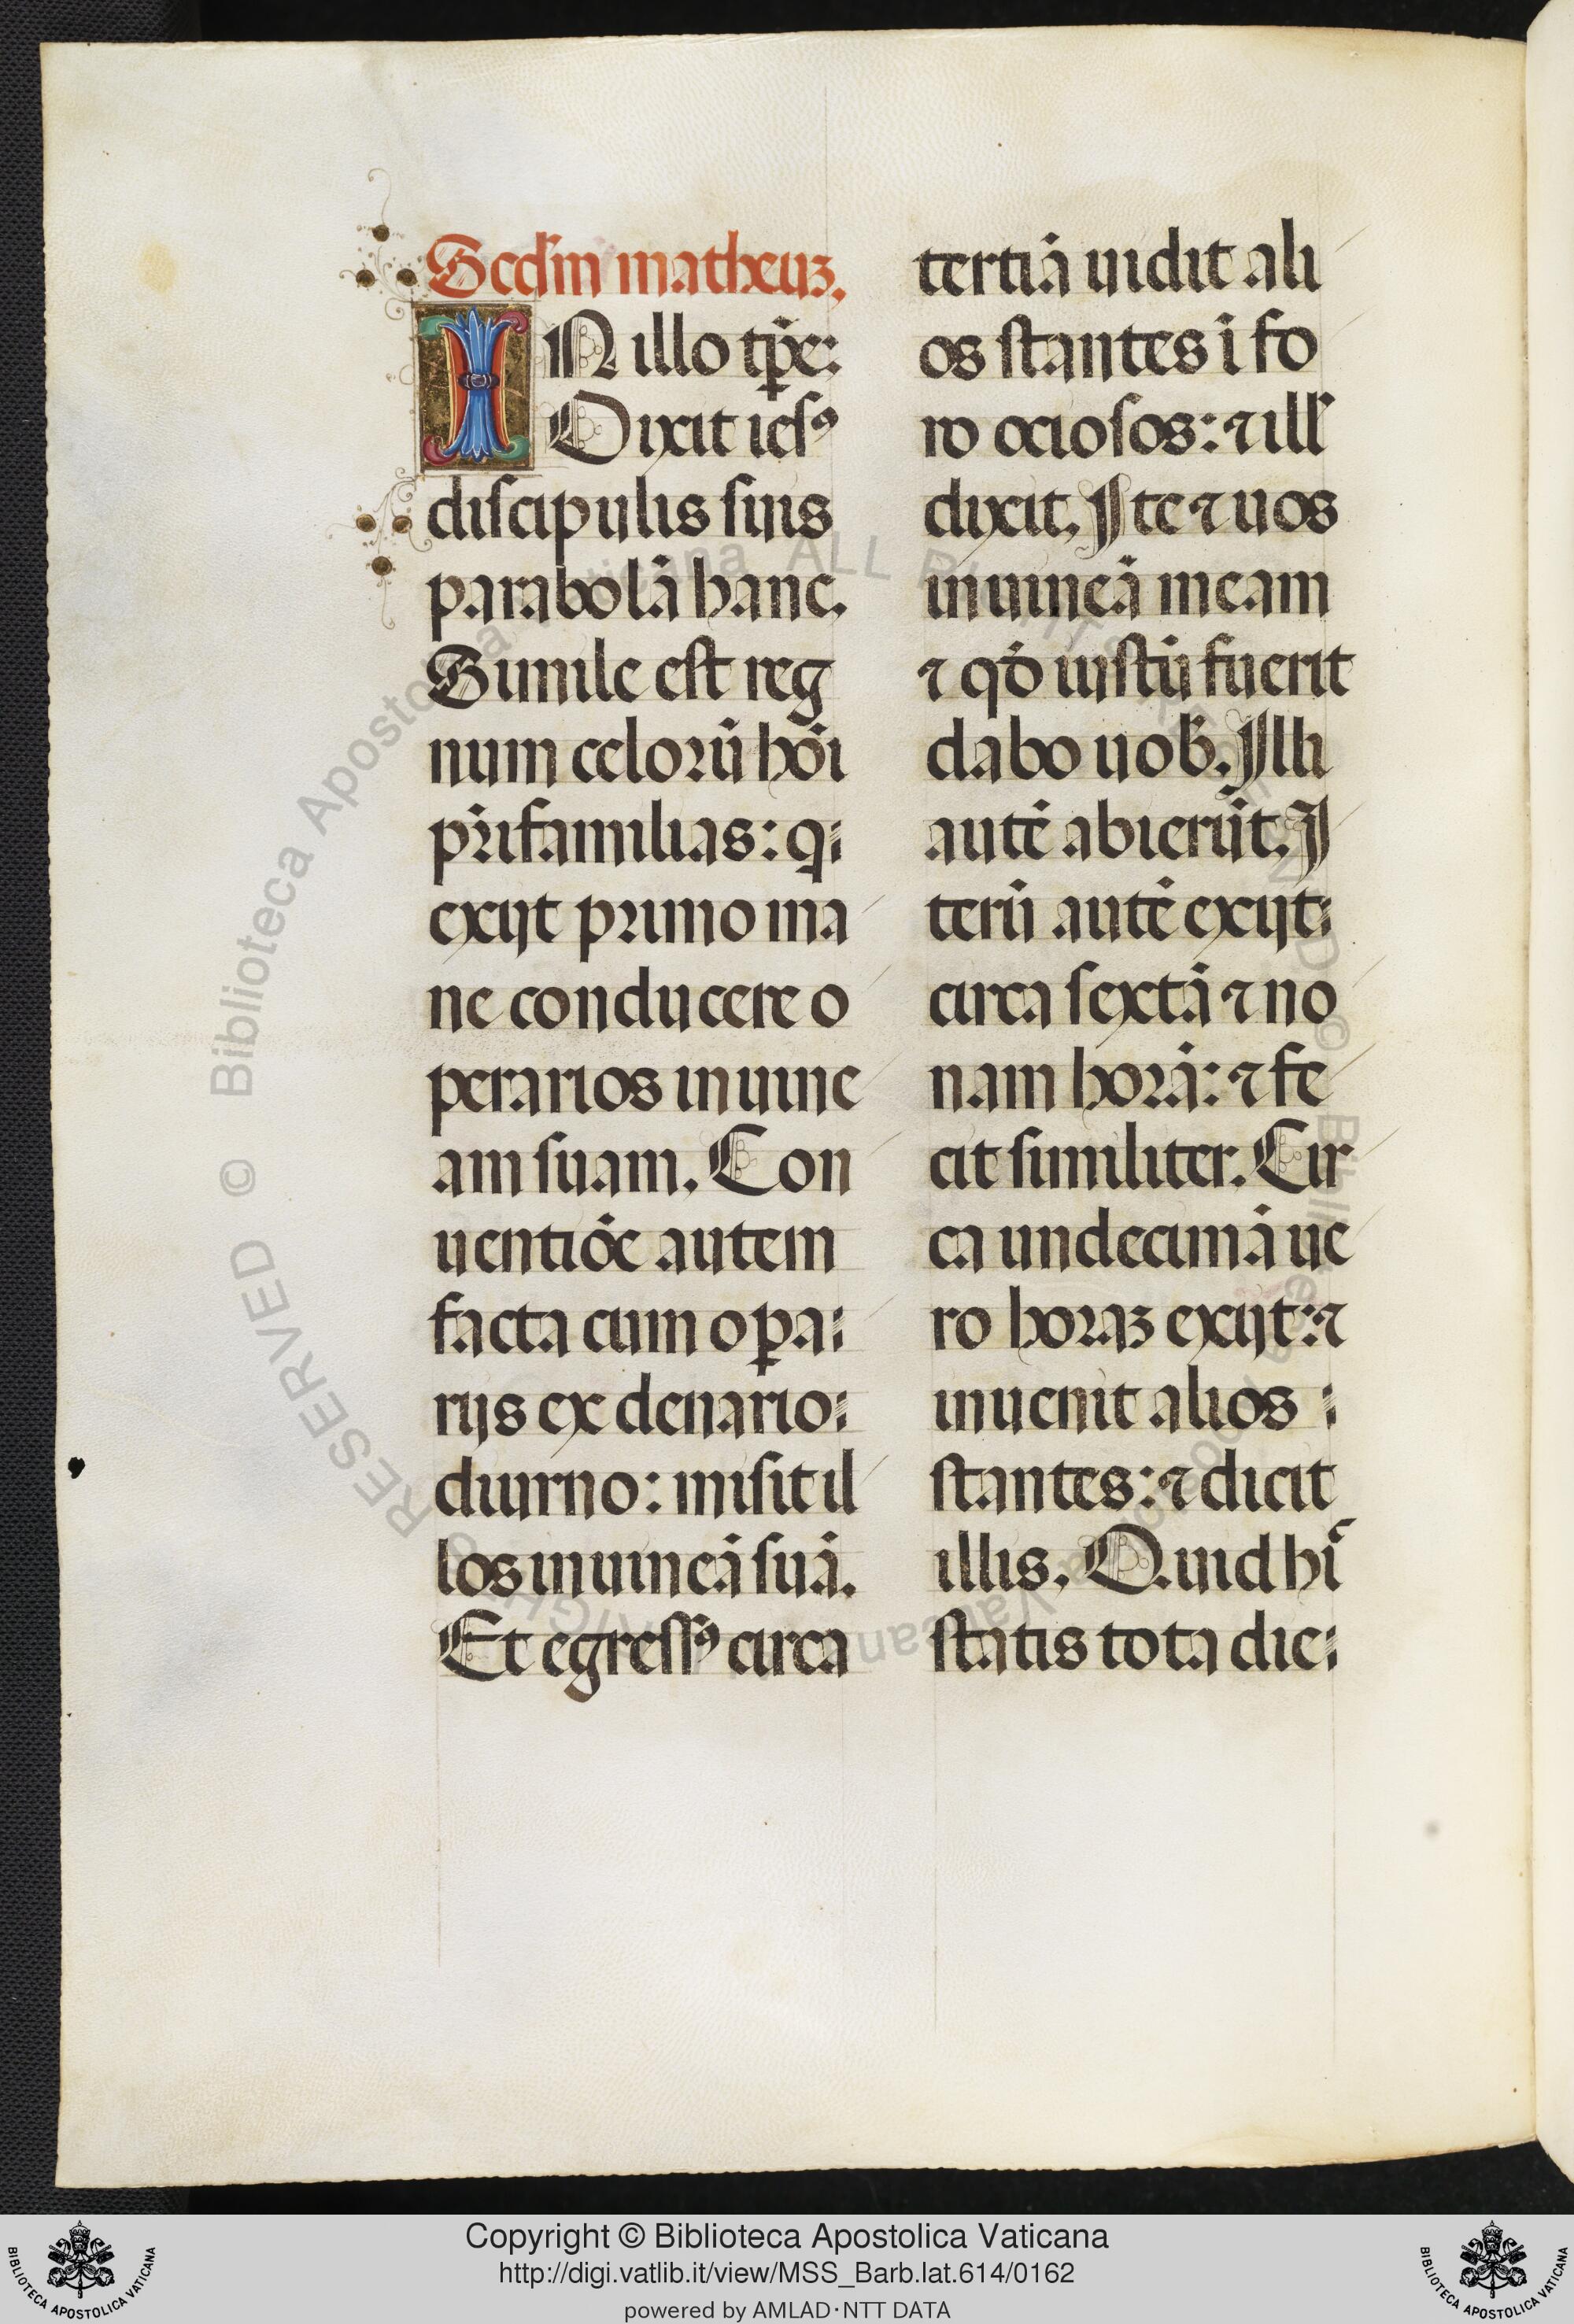 Scd̄m matheuꝫ.
IN illo tꝑe:
Dixit ieſꝰ
diſcipulis ſuis
parabolā hanc.
Simile est reg
num celoꝛū hōi
pr̄ifamilias: q
exijt pꝛimo ma
ne conducere o
perarios in uine
am ſuam. Con
uentiōe autem
facta cum oꝑa
rijs ex denario
diurno: miſit il
los in uineā ſuā.
Et egreſſꝰ circa
tertiā uidit ali
os ſtantes ī fo
ro ocioſos: ⁊ ill̓
dixit. Ite ⁊ uos
in uineā meam
⁊ qd̄ iuſtū fuerit
dabo uob̓. Illi
autē abierūt. I
terū autē exijt
circa ſextā ⁊ no
nam hoꝛā: ⁊ fe
cit ſimiliter. Cir
ca undecimā ue
ro hoꝛaꝫ exijt: ⁊
inuenit alios
ſtantes: ⁊ dicit
illis. Quid hī
ſtatis tota die
© Biblioteca Apostolica Vaticana ALL RIGHTS RESERVED © Biblioteca Apostolica Vaticana ALL RIGHTS RESERVED
BIBLIOTECA APOSTOLICA VATICANA
Copyright © Biblioteca Apostolica Vaticana
http://digi.vatlib.it/view/MSS_Barb.lat.614/0162
powered by AMLAD·NTT DATA
BIBLIOTECA APOSTOLICA VATICANA